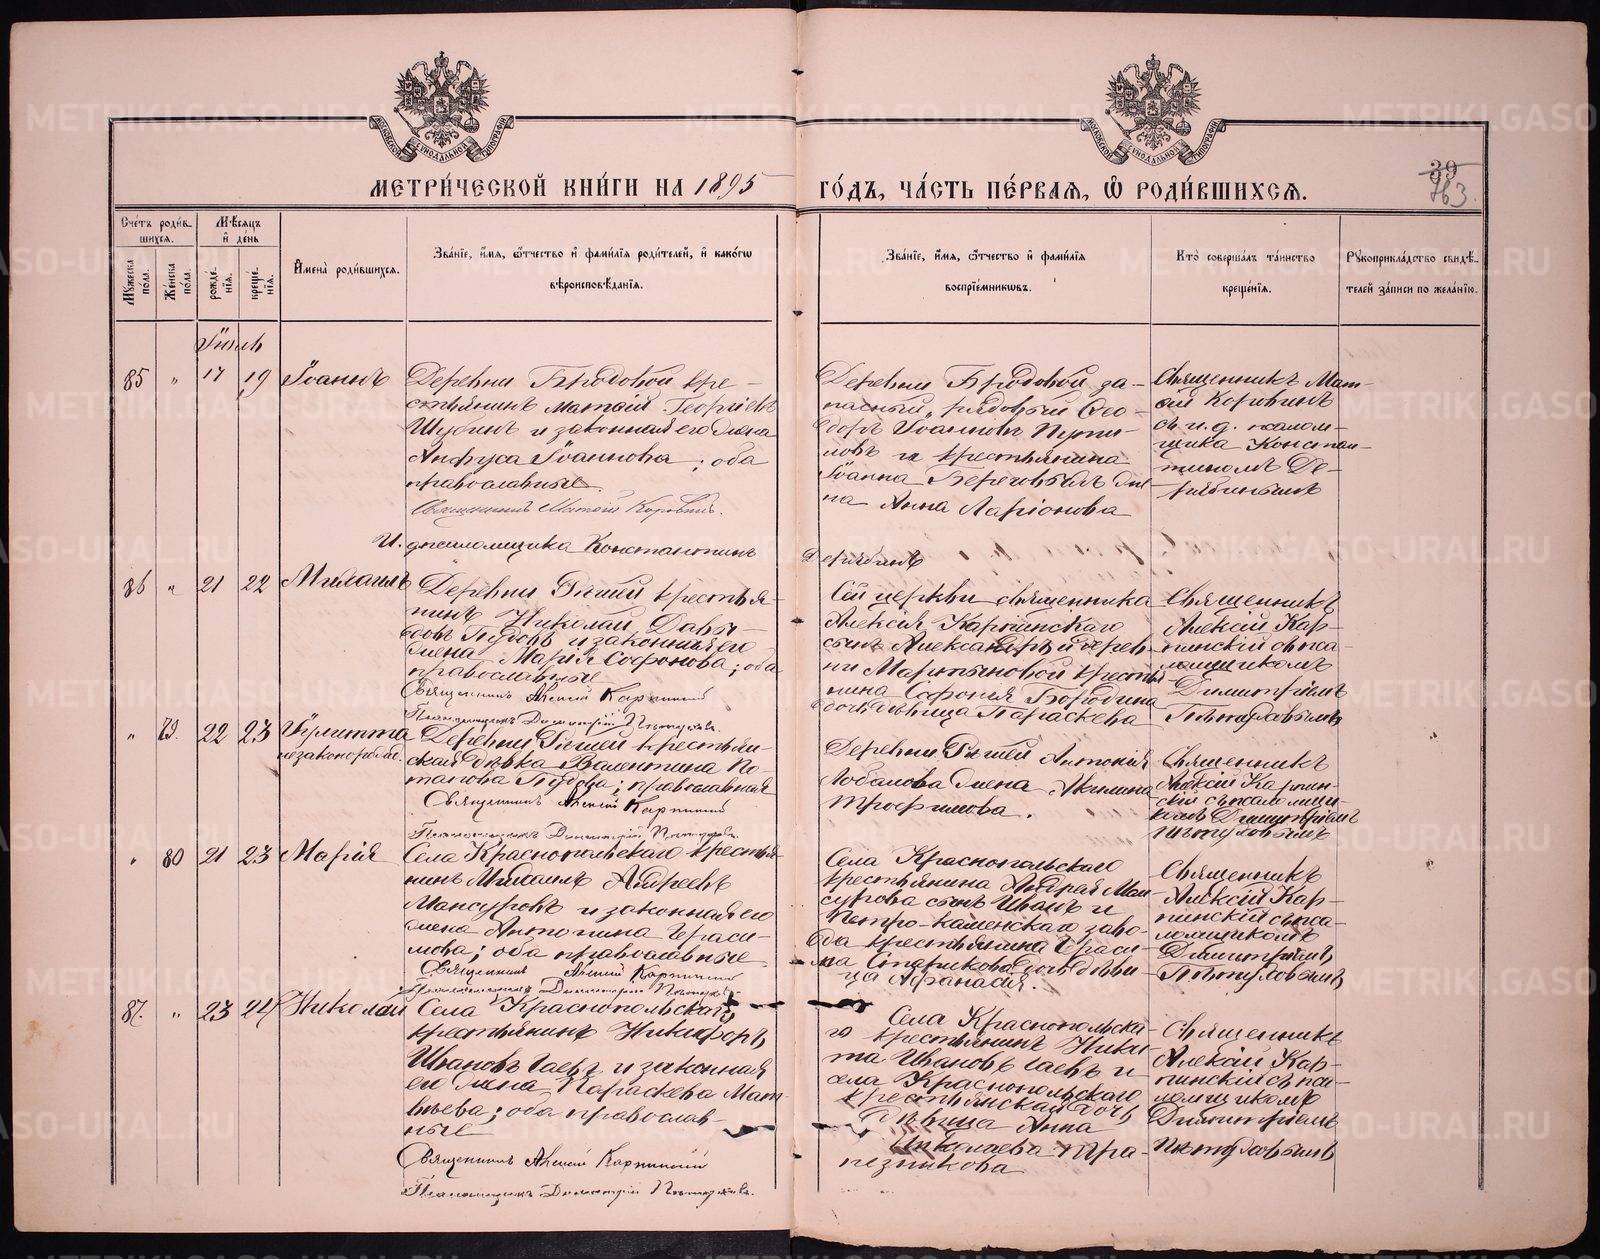 МЕТРИ́ЧЕСКОЙ КНИ́ГИ НА 1895 ГО́ДЪ, ЧА́СТЬ ПЕ́РВАЯ, Ѽ РОДИ́ВШИХСЯ.
39
763.
Сче́тъ роди́в-
шихся.
Мѣ́сяцъ
и день
Мꙋ́жеска по́ла.
Же́нска по́ла.
рожде́-
нїя.
креще́-
нїя.
И҆мена̀ роди́вшихся.
Зва́нїе, и҆́мя, ѻ҆́тчество и҆ фами́лїя роди́телей, и҆ како́гѡ
вѣроисповѣ́данїя.
Зва́нїе, и҆́мя, ѻ҆́тчество и҆ фами́лїя
воспрїе́мникѡвъ.
Кто̀ соверша́лъ та́инство
креще́нїя.
Рꙋкоприкла́дство свидѣ́-
телей за́писи по жела́нїю.
Іюль
85 " 17 19 Іоаннъ
Деревни Бродовой кре-
стьянинъ Матѳій Георгіевъ
Шубинъ и законная его жена
Анфуса Іоаннова; оба
православные.
Священникъ Матѳій Коровинъ.
И. д. псаломщика Константинъ
Деревни Бродовой за-
пасный рядовый Ѳео-
доръ Іоанновъ
и крестьянина
Іоанна же-
на Анна Ларіонова
Дерябинъ
Священникъ Мат-
ѳій Коровинъ
съ и. д. псалом-
щика Констан-
тиномъ Де-
рябинымъ
86 " 21 22 Михаилъ
Деревни крестья-
нинъ Николай Давы-
довъ и законная его
жена Марія Софонова; оба
православные
Священникъ Алексій Карпинскій
Псаломщикъ Димитрій Пѣтуховъ.
Сей церкви священника
Алексія Карпинскаго
сынъ Александръ и дерев-
ни Мартьяновой крестья-
нина Софонія Бородина
дочь дѣвица Параскева
Священникъ
Алексій Кар-
пинскій съ пса-
ломщикомъ
Димитріемъ
Пѣтуховымъ
" 79 22 23 Іулитта
незаконорожд.
Деревни крестьян-
ская дѣвка Валентина По-
тапова; православная
Священникъ Алексій Карпинскій
Псаломщикъ Димитрій Пѣтуховъ.
Деревни Антонія
Лобанова жена Акилина
Трофимова.
Священникъ
Алексій Карпин-
скій съ псаломщи-
комъ Димитріемъ
Пѣтуховымъ
" 80 21 23 Марія
Села Краснопольскаго крестья-
нинъ Михаилъ Андреевъ
Мансуровъ и законная его
жена Антонина Гераси-
мова; оба православные
Священникъ Алексій Карпинскій
Псаломщикъ Димитрій Пѣтуховъ.
Села Краснопольскаго
крестьянина Андрея Ман-
сурова сынъ Иванъ и
Петро-каменскаго заво-
да крестьянина Гераси-
ма Старикова дочь дѣви-
ца Аѳанасія.
Священникъ
Алексій Кар-
пинскій съ пса-
ломщикомъ
Димитріемъ
Пѣтуховымъ
87. " 23 24 Николай
Села Краснопольскаго
крестьянинъ Никифоръ
Ивановъ Исаевъ и законная
его жена Параскева Мат-
вѣева; оба православ-
ные
Священникъ Алексій Карпинскій
Псаломщикъ Димитрій Пѣтуховъ.
Села Краснопольска-
го крестьянинъ Ники-
та Ивановъ Исаевъ и
села Краснопольскаго
крестьянская дочь
дѣвица Анна
Николаева
Священникъ
Алексій Кар-
пинскій съ пса-
ломщикомъ
Димитріемъ
Пѣтуховымъ
METRIKI.GASO-URAL.RU